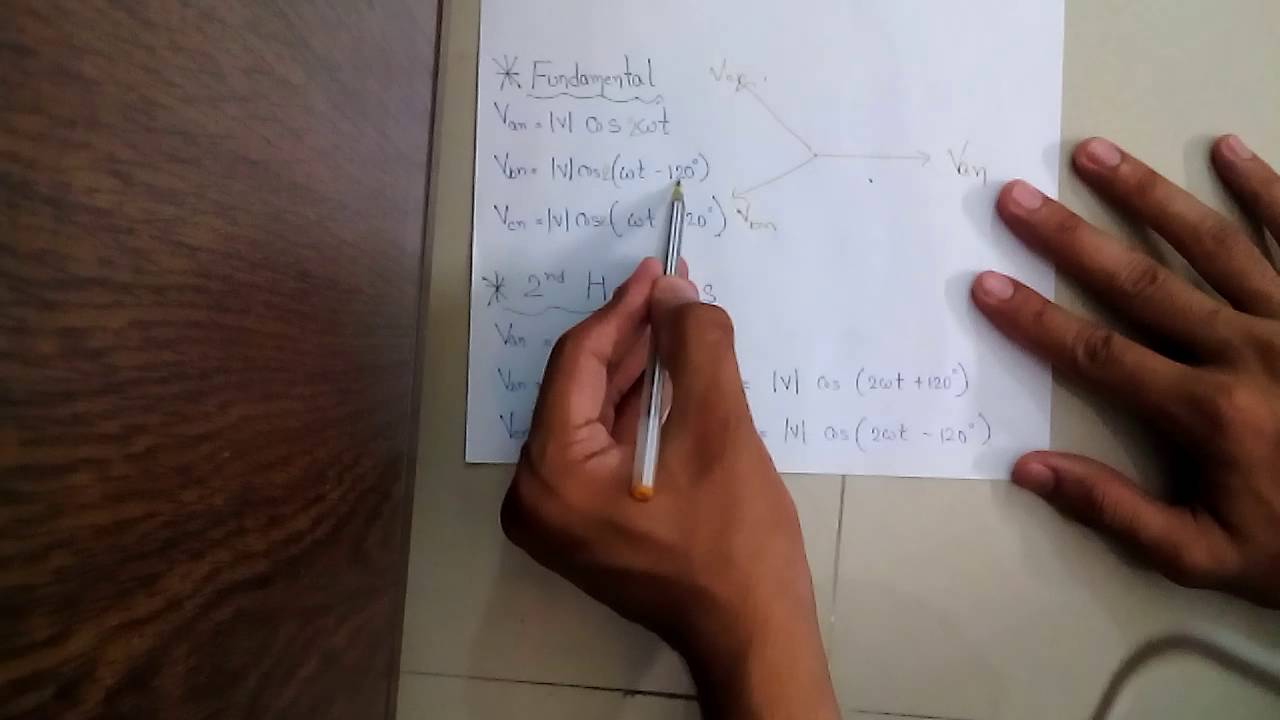 * Fundamental
Van = |V| cos 2ωt
Vbn = |V| cos2(ωt - 120°)
Vcn = |V| cos2( ωt 20°)
Van
Vbn
* 2nd H s
Van =
Vbn = = |V| cos (2ωt + 120°)
= |V| cos (2ωt - 120°)